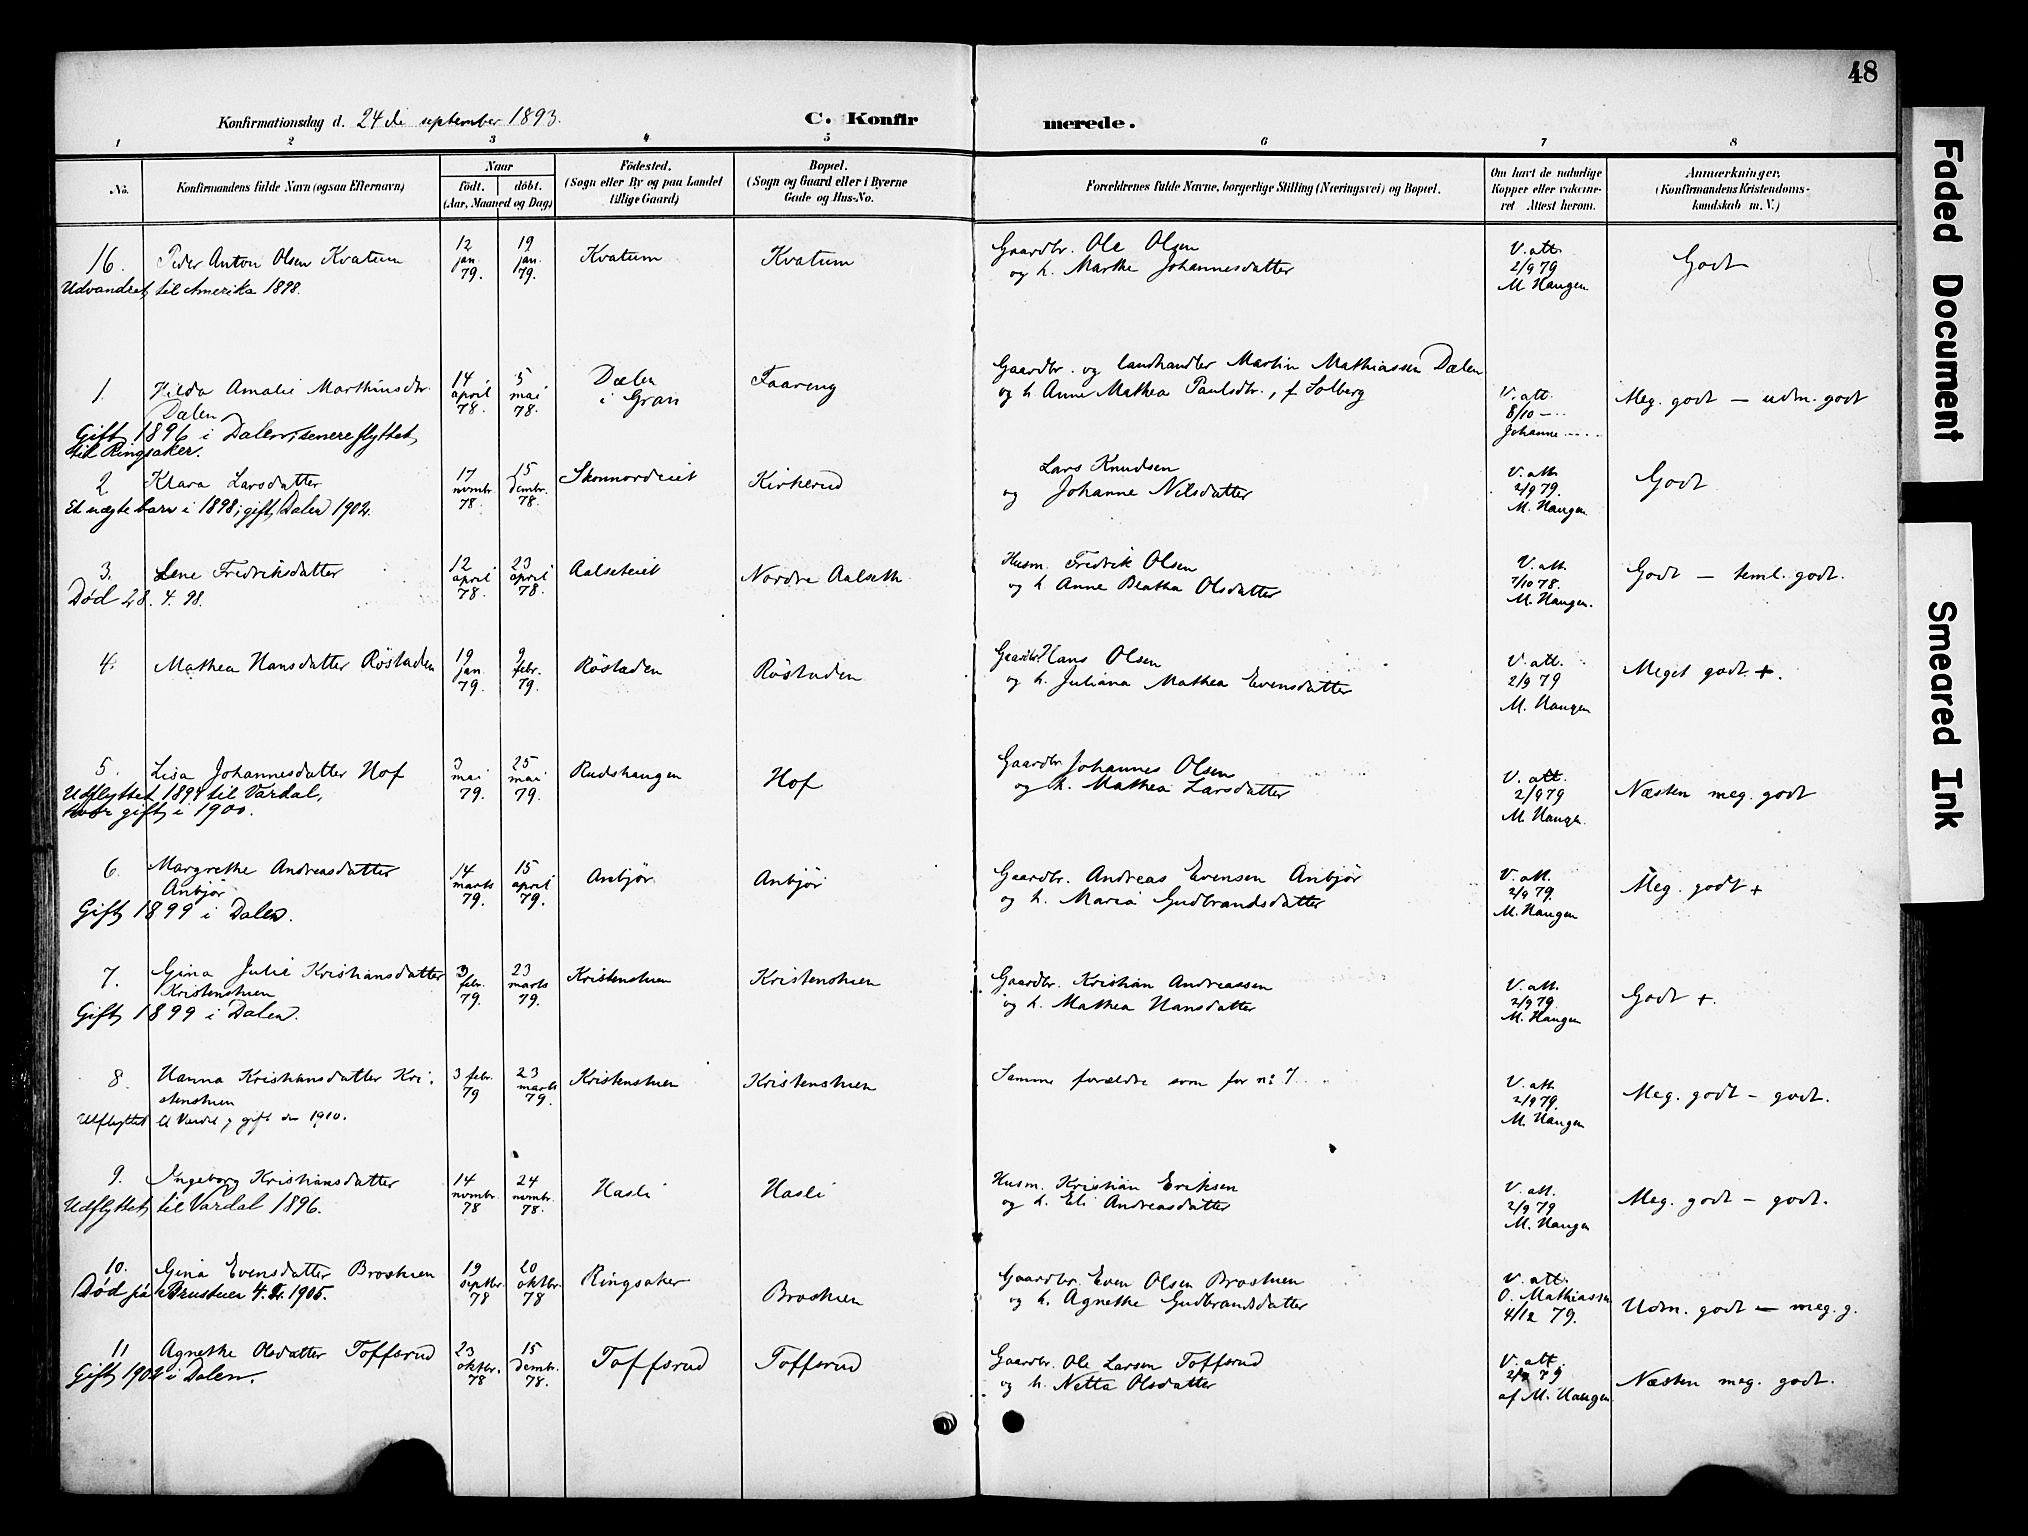 48
Konfirmationsdag d. 24de september 1893.
C. Konfirmerede.
1 2 3 4 5 6 7 8
No.
Konfirmandens fulde Navn (ogsaa Efternavn)
Naar
födt. döbt.
(Aar, Maaned og Dag)
Födested.
(Sogn eller By og paa Landet
tillige Gaard)
Bopæl.
(Sogn og Gaard eller i Byerne
Gade og Hus-No.
Forældrenes fulde Navne, borgerlige Stilling (Næringsvei) og Bopæl.
Om havt de naturlige
Kopper eller vaksineret
Attest herom.
Anmærkninger,
(Konfirmandens Kristendomskundskab
m. V.)
16. Peder Anton Olsen Kvatum
Udvandret til Amerika 1898.
12 jan. 79. 19 jan. 79.
Kvatum
Kvatum
Gaardbr. Ole Olsen
og h. Marthe Johannesdatter
V. att.
2/9 79
M. Haugen
Godt
1. Hilda Amalie Marthinsdtr.
Dælen
Gift 1896 i Dalen, senere flyttet
til Ringsaker.
14 april 78. 5 mai 78.
Dælen
i Gran
Faareng
Gaardbr. og landhandler Martin Mathiassen Dælen
og h. Anne Mathea Paulsdtr., f. Solberg
V. att.
8/10 –..
Johanne .....
Meg. godt – udm. godt
2 Klara Larsdatter
Et uægte barn i 1898; gift Dalen 1902.
17 novmbr. 78. 15 dembr. 78.
Skonnordeiet
Kirkerud
Lars Knudsen
og Johanne Nilsdatter
V. att.
2/9 79.
M. Haugen
Godt
3. Lene Fredriksdatter
Död 28. 4. 98.
12 april 78. 23 april 78.
Aalseteiet
Nordre Aalseth
Husm. Fredrik Olsen
og h. Anne Beatha Olsdatter
V. att.
7/10 78.
M. Haugen.
Godt – teml. godt.
4. Mathea Hansdatter Röstaden
19 jan. 79. 9 febr. 79.
Röstaden
Röstaden
Gaardbr. Hans Olsen
og h. Juliana Mathea Evensdatter
V. att.
2/9 79
M. Haugen
Meget godt +.
5. Lisa Johannesdatter Hof
Udflyttet 1894 til Vardal,
hvor gift i 1900.
3 mai 79. 25 mai 79.
Rudshaugen
Hof
Gaardbr. Johannes Olsen
og h. Mathea Larsdatter
V. att.
2/9 79
M. Haugen.
Næsten meg. godt
6. Margrethe Andreasdatter
Anbjör
Gift 1899 i Dalen.
14 marts 79. 15 april 79.
Anbjör
Anbjör
Gaardbr. Andreas Evensen Anbjör
og h. Maria Gudbrandsdatter
V. att.
2/9 79.
M. Haugen
Meg. godt +
7. Gina Julie Kristiansdatter
Kristenstuen
Gift 1899 i Dalen.
3 febr. 79. 23 marts 79.
Kristenstuen
Kristenstuen
Gaardbr. Kristian Andreassen
og h. Mathea Hansdatter
V. att.
2/9 79.
M. Haugen
Godt +.
8. Hanna Kristiansdatter Kristenstuen
Udflyttet til Vardal, gift der 1910.
3 febr. 79 23 marts 79.
Kristenstuen
Kristenstuen
Samme forældre som for no 7
V. att.
2/9 79.
M. Haugen
Meg. godt – godt.
9. Ingeborg Kristiansdatter
Udflyttet til Vardal 1896.
14 novmbr. 78 24 novmbr. 78.
Hasli
Hasli
Husm. Kristian Eriksen
og h. Eli Andreasdatter
V. att.
2/9 79
M. Haugen
Meg. godt – godt.
10. Gina Evensdatter Brostuen
Död på Brustuen 4. 1905.
19 septbr. 78 20 oktbr. 78
Ringsaker
Brostuen
Gaardbr. Even Olsen Brostuen
og h. Agnethe Gudbrandsdatter
V. att.
O. Mathiassen
4/12 79.
Udm. godt – meg. g.
11 Agnethe Olsdatter Toffsrud
Gift 1902 i Dalen.
23 oktbr. 78 15 dembr. 78.
Toffsrud
Toffsrud
Gaardbr. Ole Larsen Toffsrud
og h. Netta Olsdatter
V. att.
2/9 79
af M. Haugen
Næsten meg. godt.
Faded Document
Smeared Ink